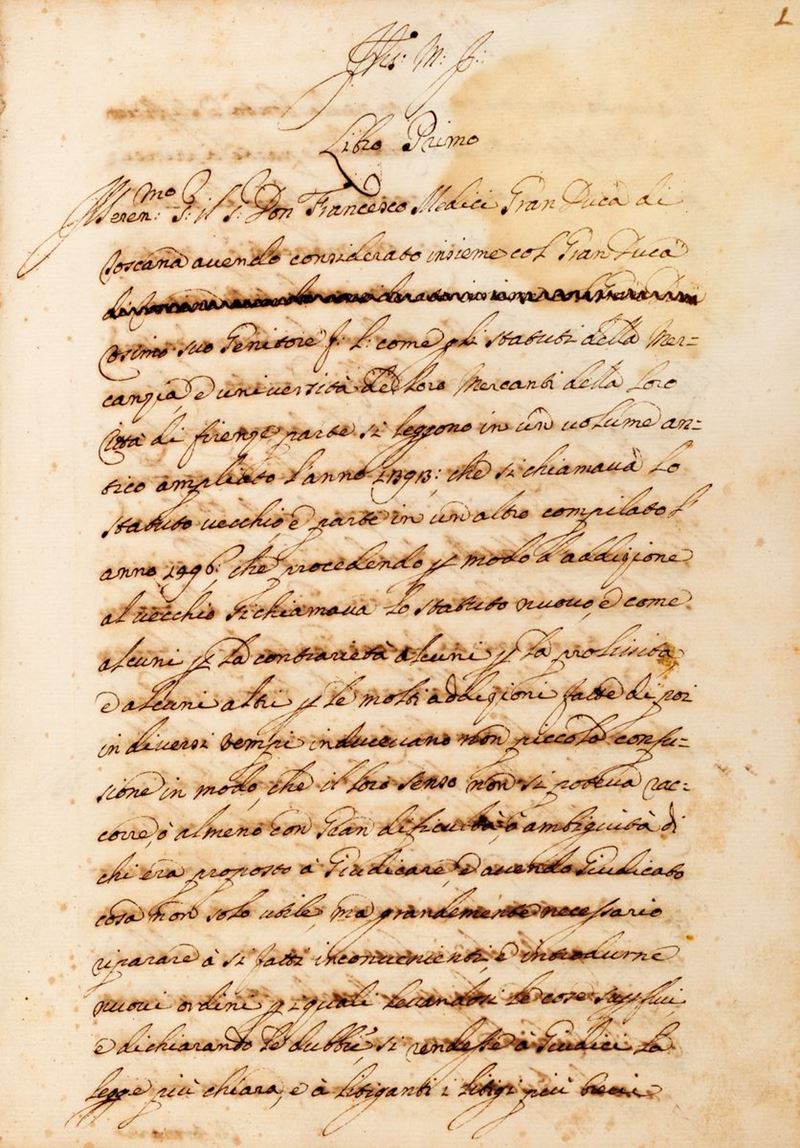 1
Jhs: M: J:
Libro Primo
Il Seren:mo S: il S: Don Francesco Medici Gran Duca di
Toscana avendo considerato insieme col Gran Duca
simo suo Genitore f: l: come gli statuti della Mer=
canzia, e università de loro Mercanti della loro
Città di firenze parte si leggono in un volume an=
tico ampliato l'anno 1393: che si chiamava lo
statuto vecchio, e parte in un altro compilato l'
anno 1496: che procedendo p modo d'addizione
al vecchio si chiamava lo statuto nuovo, e come
alcuni p la contrarietà alcuni p la prolissità
e alcuni altri p le molti addizioni fatte di poi
in diversi tempi inducevano non piccola confu=
sione in modo, che il loro senso non si poteva rac=
corre, ò almeno con Gran dificultà, ò ambiguità di
chi era proposto à Giudicare, e avendo Giudicato
cosa non solo utile, ma grandemente necessario
riparare à si fatti inconvenienti, e introdurne
nuovi ordini p i quali levandosi le cose
e dichiarando le dubbie si rendesse à Giudici la
legge più chiara, e à litiganti i litigi più brevi